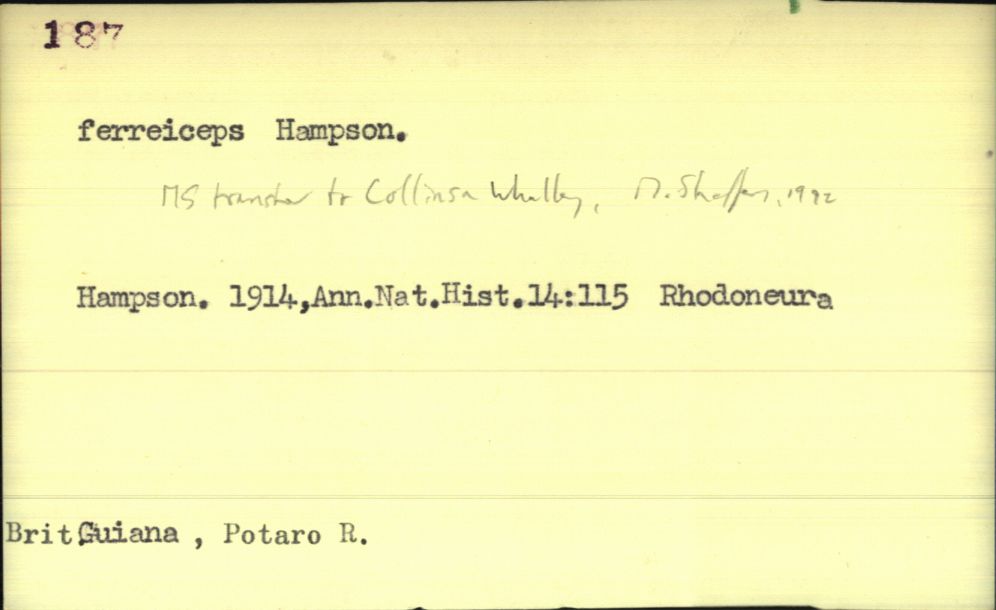 187
ferreiceps Hampson.
MS transfer to Collinsa Whalley, M. Shaffer, 1982
Hampson. 1914,Ann.Nat.Hist.14:115 Rhodoneura
Brit.Guiana , Potaro R.